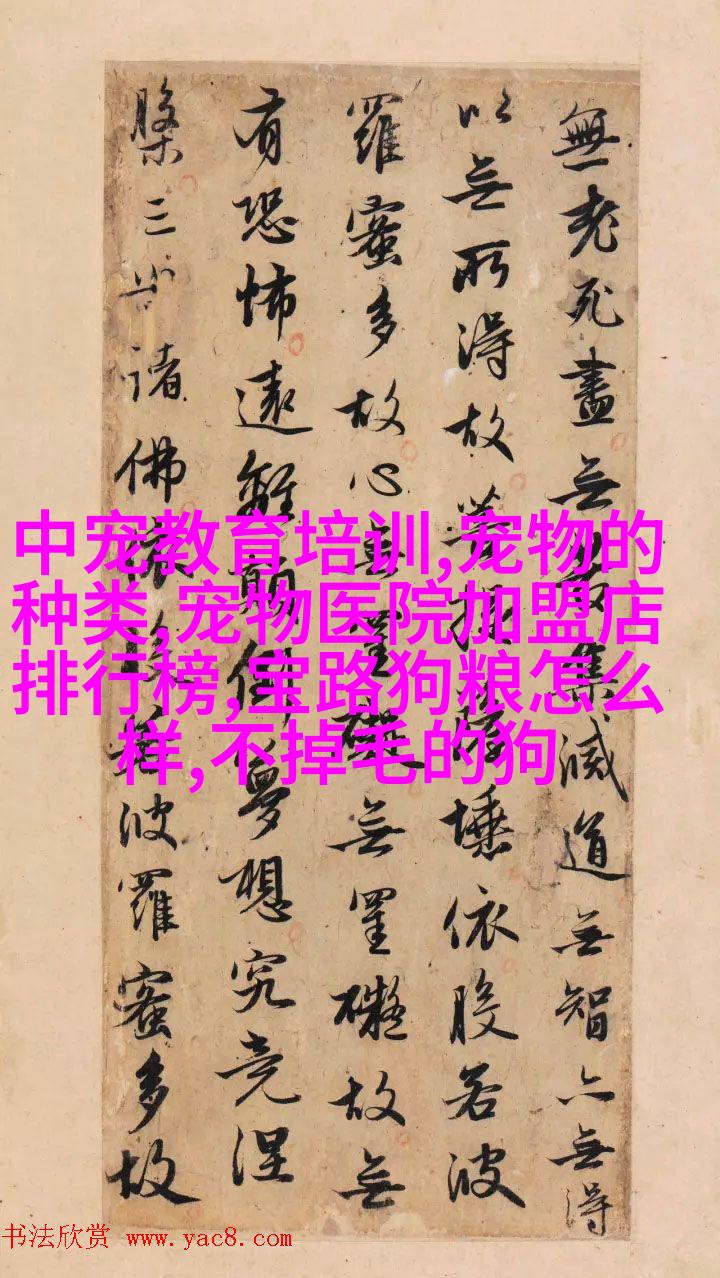 無老死盡無苦集滅道無智亦無得
以無所得故菩提薩埵依般若波
羅蜜多故心無罣礙無罣礙故無
有恐怖遠離顛倒夢想究竟涅
槃三世諸佛依般若波羅蜜多故
中宠教育培训,宠物的
种类,宠物医院加盟店
排行榜,宝路狗粮怎么
样,不掉毛的狗
书法欣赏 www.yac8.com